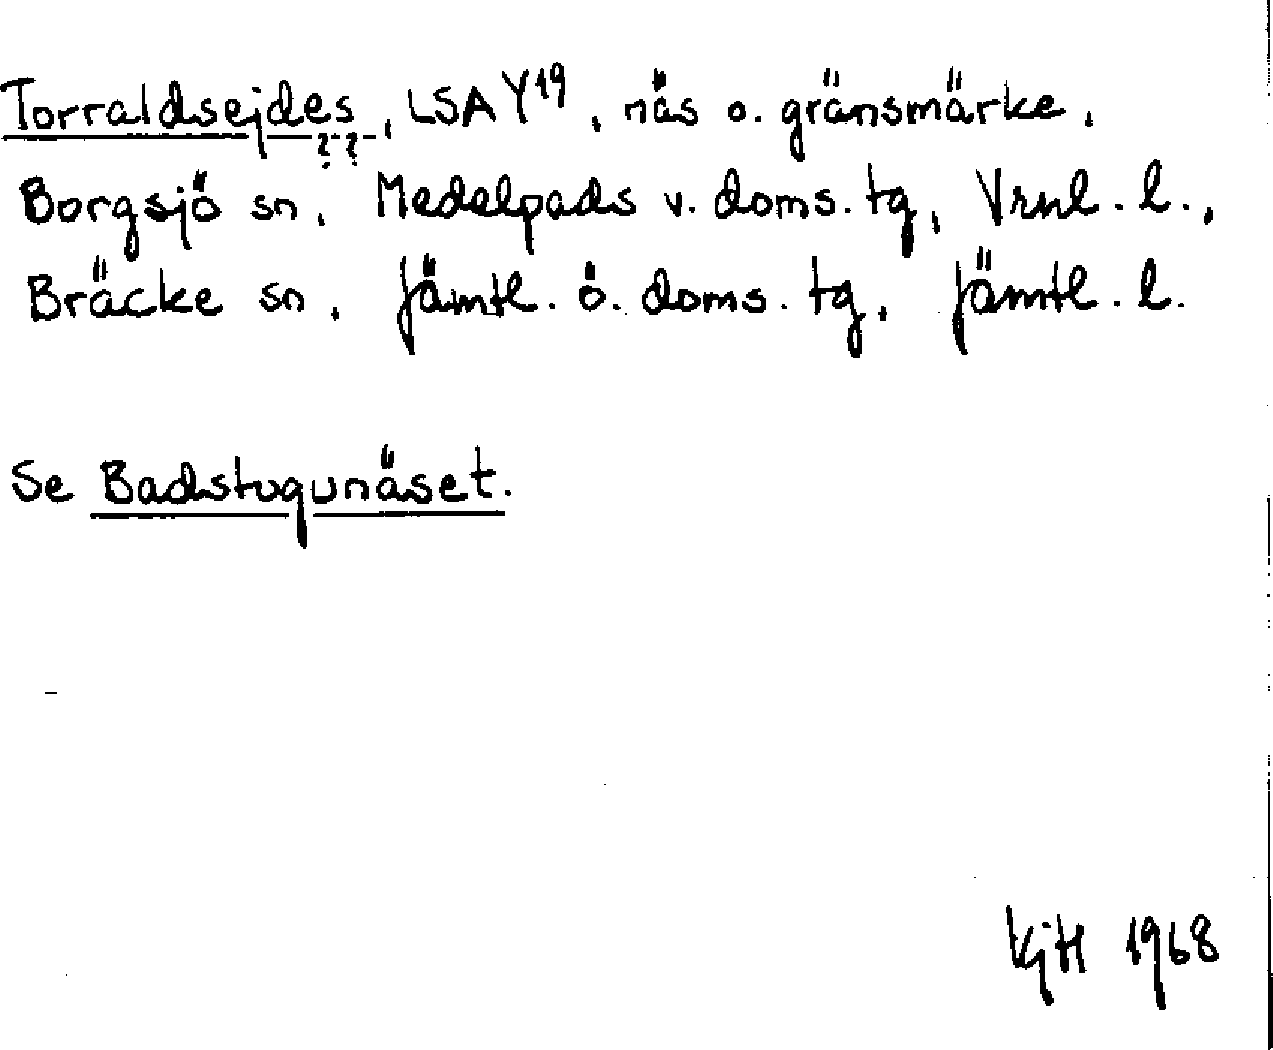 Torraldsejdes, LSA Y19, näs o. gränsmärke,
? ?
Borgsjö sn, Medelpads v. doms. tg, Vrnl. l.,
Bräcke sn, Jämtl. ö. doms. tg, Jämtl. l.
Se Badstugunäset.
KjH 1968